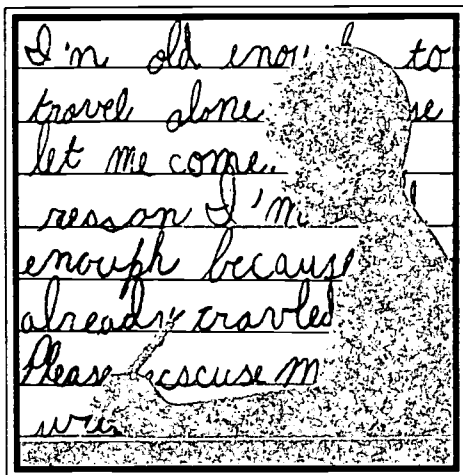 I'm old to
travel alone
let me come.
reason I'm
enough because
already travled
Please